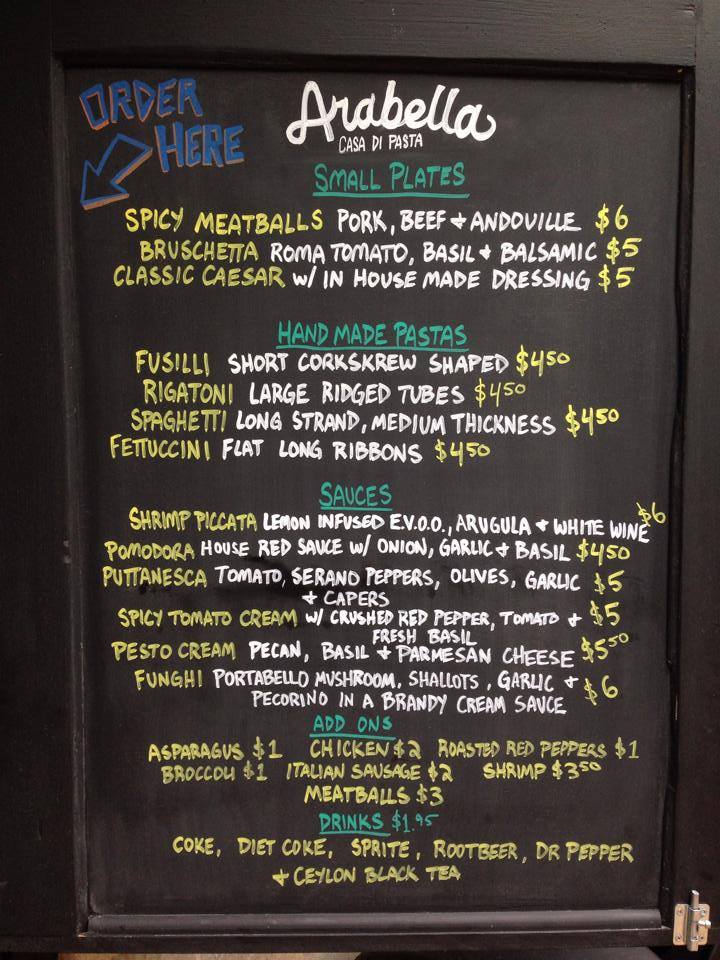 ORDER
HERE
Arabella
CASA DI PASTA
SMALL PLATES
SPICY MEATBALLS PORK, BEEF + ANDOUILLE $6
BRUSCHETTA ROMA TOMATO, BASIL + BALSAMIC $5
CLASSIC CAESAR W/ IN HOUSE MADE DRESSING $5
HAND MADE PASTAS
FUSILLI SHORT CORKSKREW SHAPED $4 50
RIGATONI LARGE RIDGED TUBES $4 50
SPAGHETTI LONG STRAND, MEDIUM THICKNESS $4 50
FETTUCCINI FLAT LONG RIBBONS $4 50
SAUCES
SHRIMP PICCATA LEMON INFUSED E.V.O.O., ARUGULA + WHITE WINE $6
POMODORA HOUSE RED SAUCE W/ ONION, GARLIC + BASIL $4 50
PUTTANESCA TOMATO, SERANO PEPPERS, OLIVES, GARLIC $5
+ CAPERS
SPICY TOMATO CREAM W/ CRUSHED RED PEPPER, TOMATO + $5
FRESH BASIL
PESTO CREAM PECAN, BASIL + PARMESAN CHEESE $5 50
FUNGHI PORTABELLO MUSHROOM, SHALLOTS, GARLIC + $6
PECORINO IN A BRANDY CREAM SAUCE
ADD ONS
ASPARAGUS $1 CHICKEN $2 ROASTED RED PEPPERS $1
BROCCOLI $1 ITALIAN SAUSAGE $2 SHRIMP $3 50
MEATBALLS $3
DRINKS $1.95
COKE, DIET COKE, SPRITE, ROOTBEER, DR PEPPER
+ CEYLON BLACK TEA